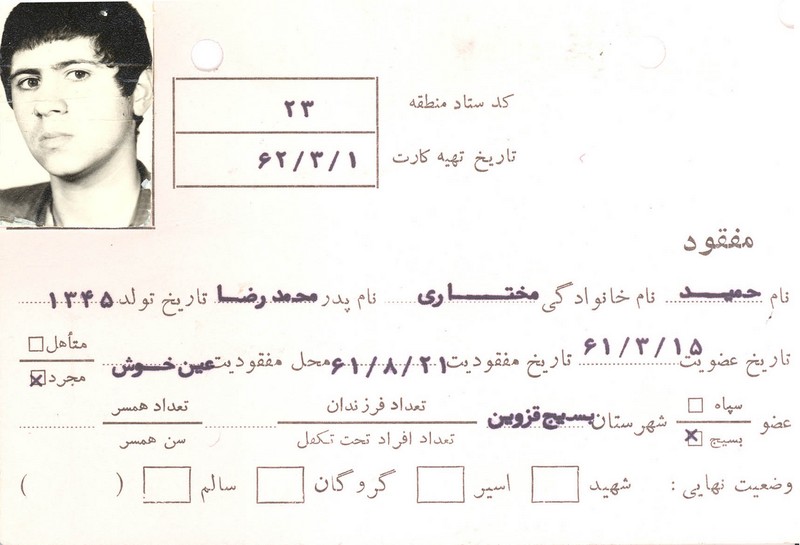 کد ستاد منطقه ۲۳
تاریخ تهیه کارت ۶۲/۳/۱
مفقود
نام حمید نام خانوادگی مختاری نام پدر محمدرضا تاریخ تولد ۱۳۴۵
تاریخ عضویت ۶۱/۳/۱۵ تاریخ مفقودیت ۶۱/۸/۲۱ محل مفقودیت عین خوش متأهل
مجرد
عضو سپاه شهرستان بسیج قزوین تعداد فرزندان تعداد همسر
بسیج تعداد افراد تحت تکفل سن همسر
وضعیت نهایی : شهید اسیر گروگان سالم ( )